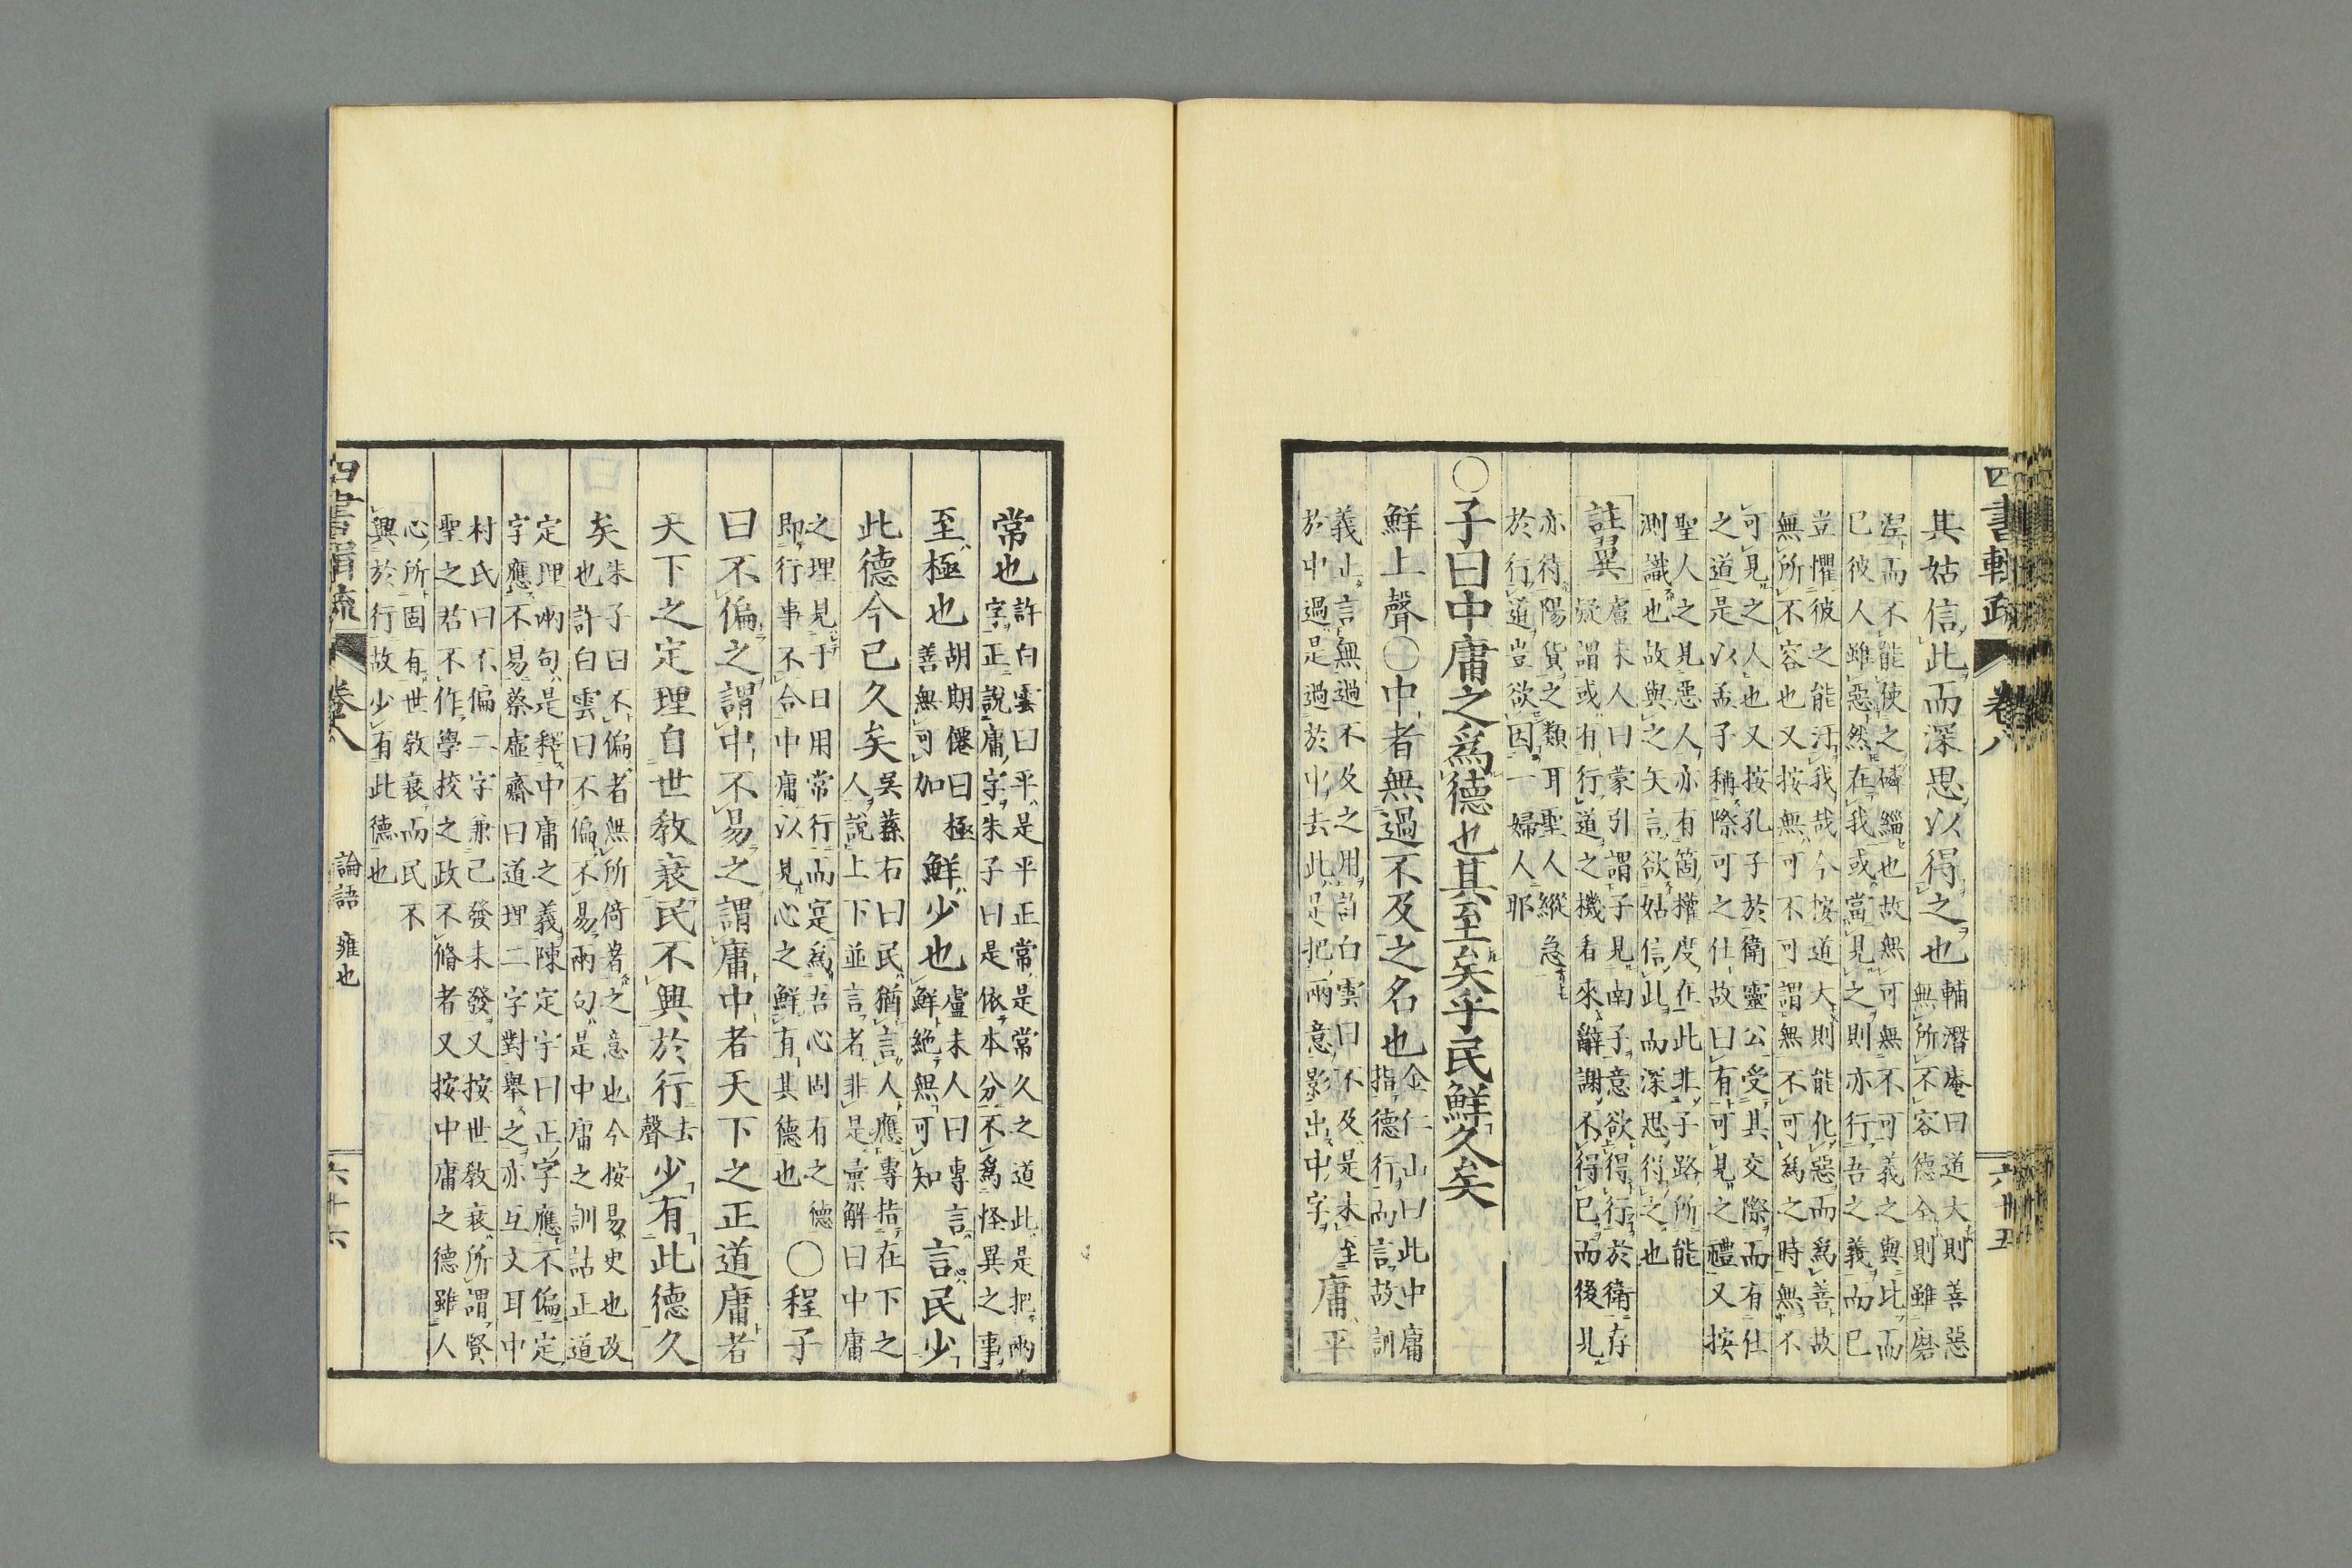 其姑信此而深思以得之也輔潛庵曰道大則善惡
無所不容德全則雖磨
涅而不能使之磷緇也故無可無不可義之與比而
已彼人雖惡然在我或當見之則亦行吾之義而已
豈懼彼之能汙我哉今按道大則能化惡而爲善故
無所不容也又按無可不可謂無不可爲之時無不
可見之人也又按孔子於衛靈公受其交際而有仕
之道是以孟子稱際可之仕故曰有可見之禮又按
聖人之見惡人亦有箇權度在此非子路所能
測識也故與之矢言欲姑信此而深思得之也
註翼
盧未人曰蒙引謂子見南子意欲得行於衛存
疑謂或有行道之機看來辭謝不得已而後見
亦待陽貨之類耳聖人縱急
於行道豈欲因一婦人耶
○子曰中庸之爲德也其至矣乎民鮮久矣
鮮上聲○中者無過不及之名也金仁山曰此中庸
指德行而言故訓
義止言無過不及之用許白雲曰不及是未至
於中過是過於中去此是把兩意影出中字
庸平
四書輯疏 卷八 六十五
常也許白雲曰平是平正常是常久之道此是把兩
字正說庸字朱子曰是依本分不爲怪異之事
至極也胡期僊曰極
善無可加
鮮少也盧未人曰專言
鮮絶無可知
言民少
此德今已久矣吳蓀右曰民猶言人應專指在下之
人說上下並言者非是彙解曰中庸
之理見于日用常行而寔爲吾心固有之德
即行事不合中庸以見心之鮮有其德也
○程子
曰不偏之謂中不易之謂庸中者天下之正道庸者
天下之定理自世教衰民不興於行去聲少有此德久
矣朱子曰不偏者無所倚著之意也今按易史也改
也許白雲曰不偏不易兩句是中庸之訓詁正道
定理兩句是釋中庸之義陳定宇曰正字應不偏定
字應不易蔡虛齋曰道理二字對舉之亦互文耳中
村氏曰不偏二字兼己發未發又按世教衰所謂賢
聖之君不作學挍之政不脩者又按中庸之德雖人
心所固有世教衰而民不
興於行故少有此德也
四書輯疏 卷八 論語 雍也 六十六